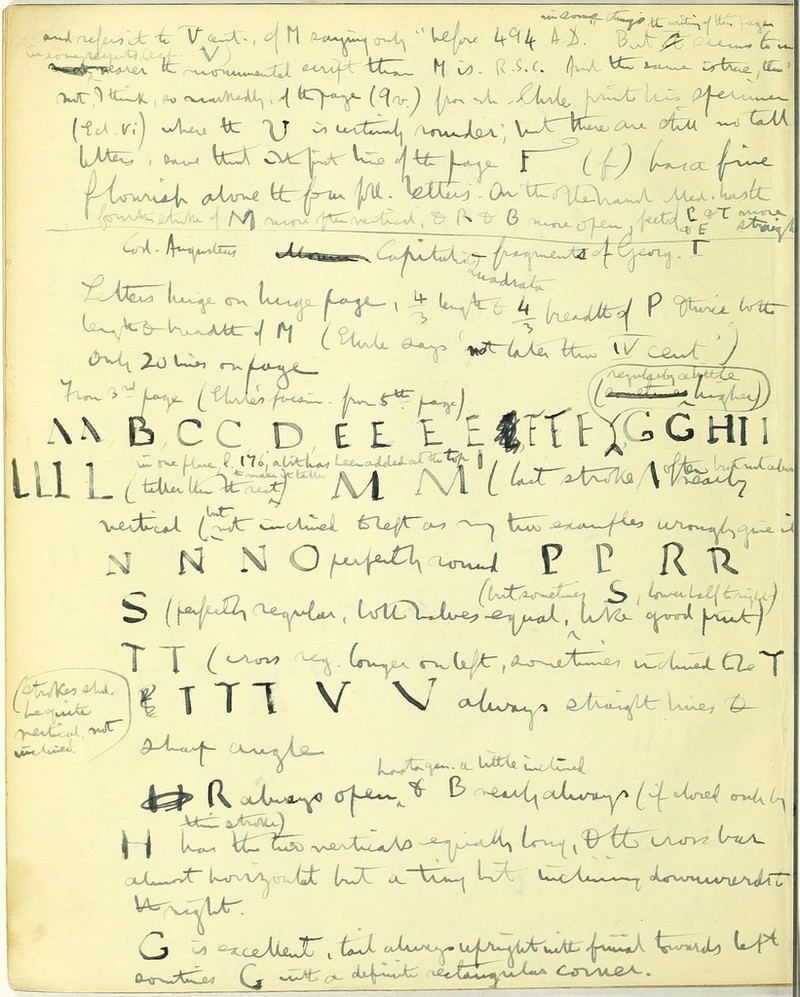 in some things the writing of this page
and refers it to V cent., of M saying only "before 494 A.D. But it seems to me
in some respects (esp. V)
nearer the monumental script than M is. R.S.C. And the same is true, tho'
not, I think, so markedly, of the page (9v.) from wh. Ehrle prints his specimen
(Ed. Vi) where the V is certainly rounder; but there are still no tall
letters, save that in the first line of the page F (f) has a fine
flourish above the four foll. letters. On the other hand Med. has the
fourth stroke of M more often vertical, & R & B more open, feet of P & T more
& E straight
Cod. Augusteus Capitalis – fragments of Georg. I
Quadrata
Letters huge on huge page, 4/3 length & 4/3 breadth of P & twice both
length & breadth of M (Ehrle says 'not later than IV cent')
Only 20 lines on page
regularly a little
From 3rd page (Ehrle's facsim. from 5th page) (sometimes higher)
AA B, C C D, E E E E F F F G G H I I
in one place, l. 176, a bit has been added at the top
to make it taller
L L L L (taller than the rest) M M (last stroke often but not always nearly
vertical (but not inclined to left as my two examples wrongly give it
N N N O perfectly round P P R R
(but sometimes S, lower half to right)
S (perfectly regular, both halves equal, like good print)
T T (cross reg. longer on left, sometimes inclined like T
(strokes shd. be quite vertical, not inclined
T T T V V always straight lines &
sharp angle
has to gen. a little inclined
R always open, & B nearly always (if closed only by
thin stroke)
H has the two verticals equally long, & the cross bar
almost horizontal but a tiny bit inclining downwards to
the right.
G is excellent, tail always upright with finial towards left
sometimes G with a definite rectangular corner.